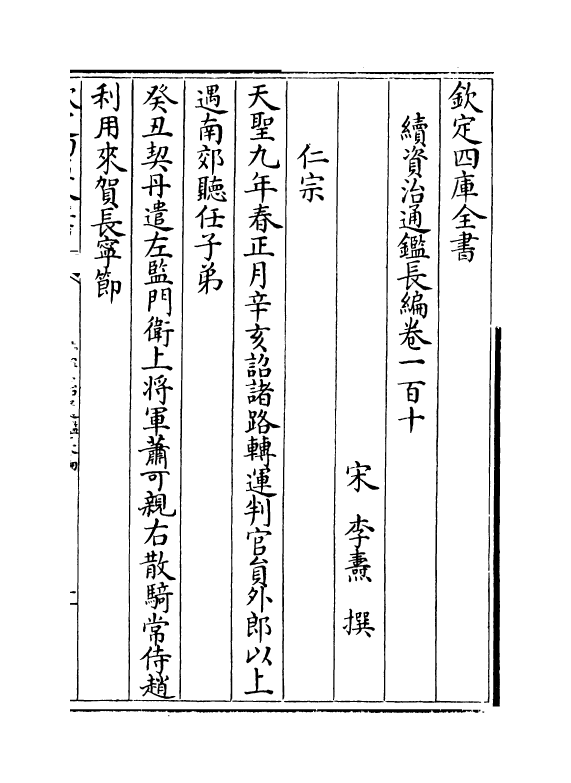 欽定四庫全書
續資治通鑑長編卷一百十
宋 李燾 撰
仁宗
天聖九年春正月辛亥詔諸路轉運判官員外郎以上
遇南郊聽任子弟
癸丑契丹遣左監門衛上將軍蕭可親右散騎常侍趙
利用來賀長寧節